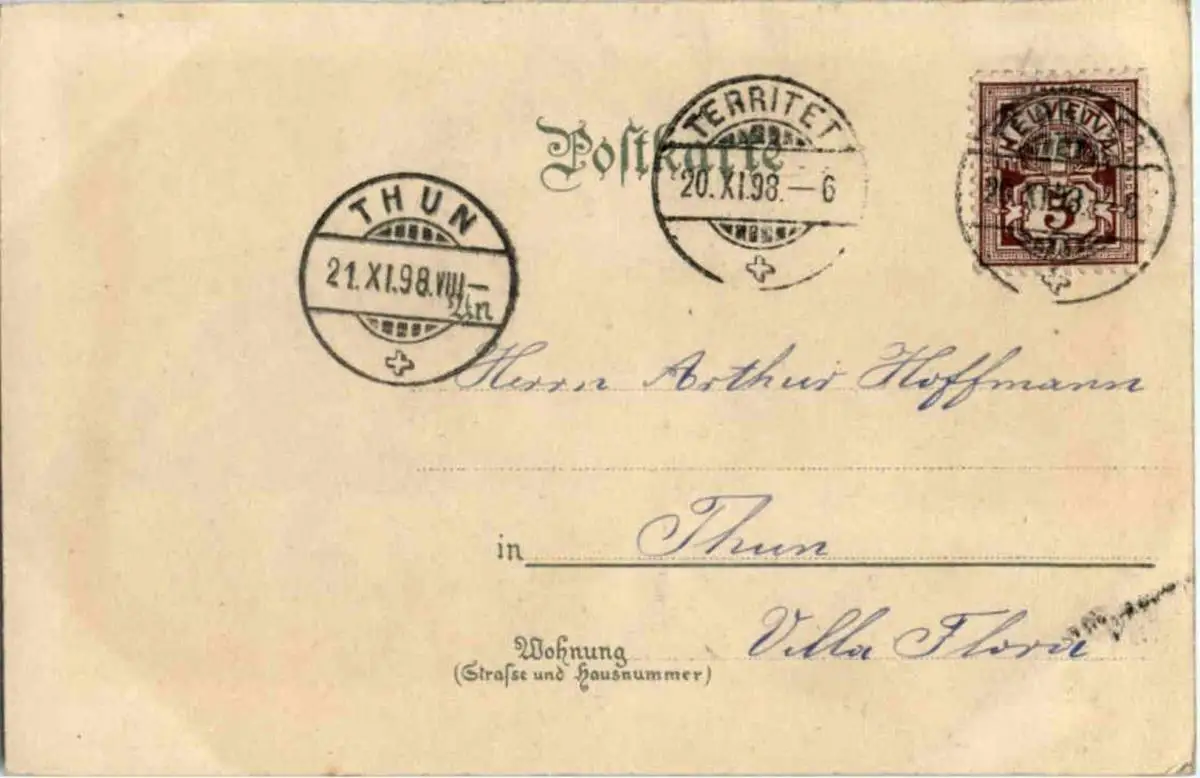 Postkarte
TERRITET
20.XI.98.–6
HELVETIA
5
THUN
21.XI.98.VIII–
An
Herrn Arthur Hoffmann
in Thun
Wohnung
(Strasse und Hausnummer)
Villa Flora